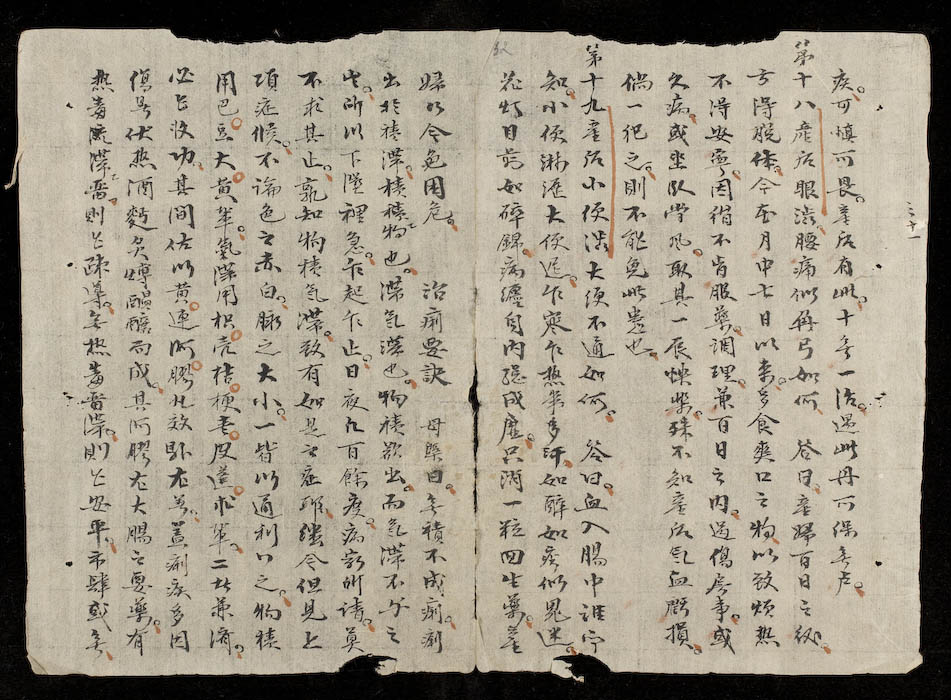 疾可慎可畏產后有此十無一治遇此丹可保無虞
第十八產后眼澁腰痛似角弓如何 答曰產婦百日之後
方得脫體今在月中七日以來多食爽口之物以致煩熱
不得安寧因循不肯服藥調理兼百日之內過傷房事或
久病或坐臥當風取其一辰快樂殊不知產后氣血虧損
倘一犯之則不能免此患也
三十一
第十九產后小便澁大便不通如何 答曰血入腸中誰肯
知小便淋瀝大便遲乍寒乍熱半多汗如醉如痴似鬼迷
花灯目前如碎錦病纏身內穩成虛只消一粒回生藥
婦以今色用危 治痢要訣 丹溪曰無積不成痢痢
出於積滯積物也滯氣滯也物積欲出而氣滯不與之
出所以下墜裡急乍起乍止日夜凡百餘度病家所請莫
不求其止孰知物積氣滯致有如是之症耶縱令但見上
項症候不論色之赤白脉之大小一皆以通利之物積
用巴豆大黃輩氣滯用枳壳桔梗毛皮蓬朮輩二者兼濟
必占收功其間佐以黃連阿膠其效尤著蓋痢疾多因
傷暑伏熱酒麵炙煿醞釀而成其阿膠尤大腸之要藥有
熱毒流滯畜則占疎導無熱毒畜滯則占安平市肆或無